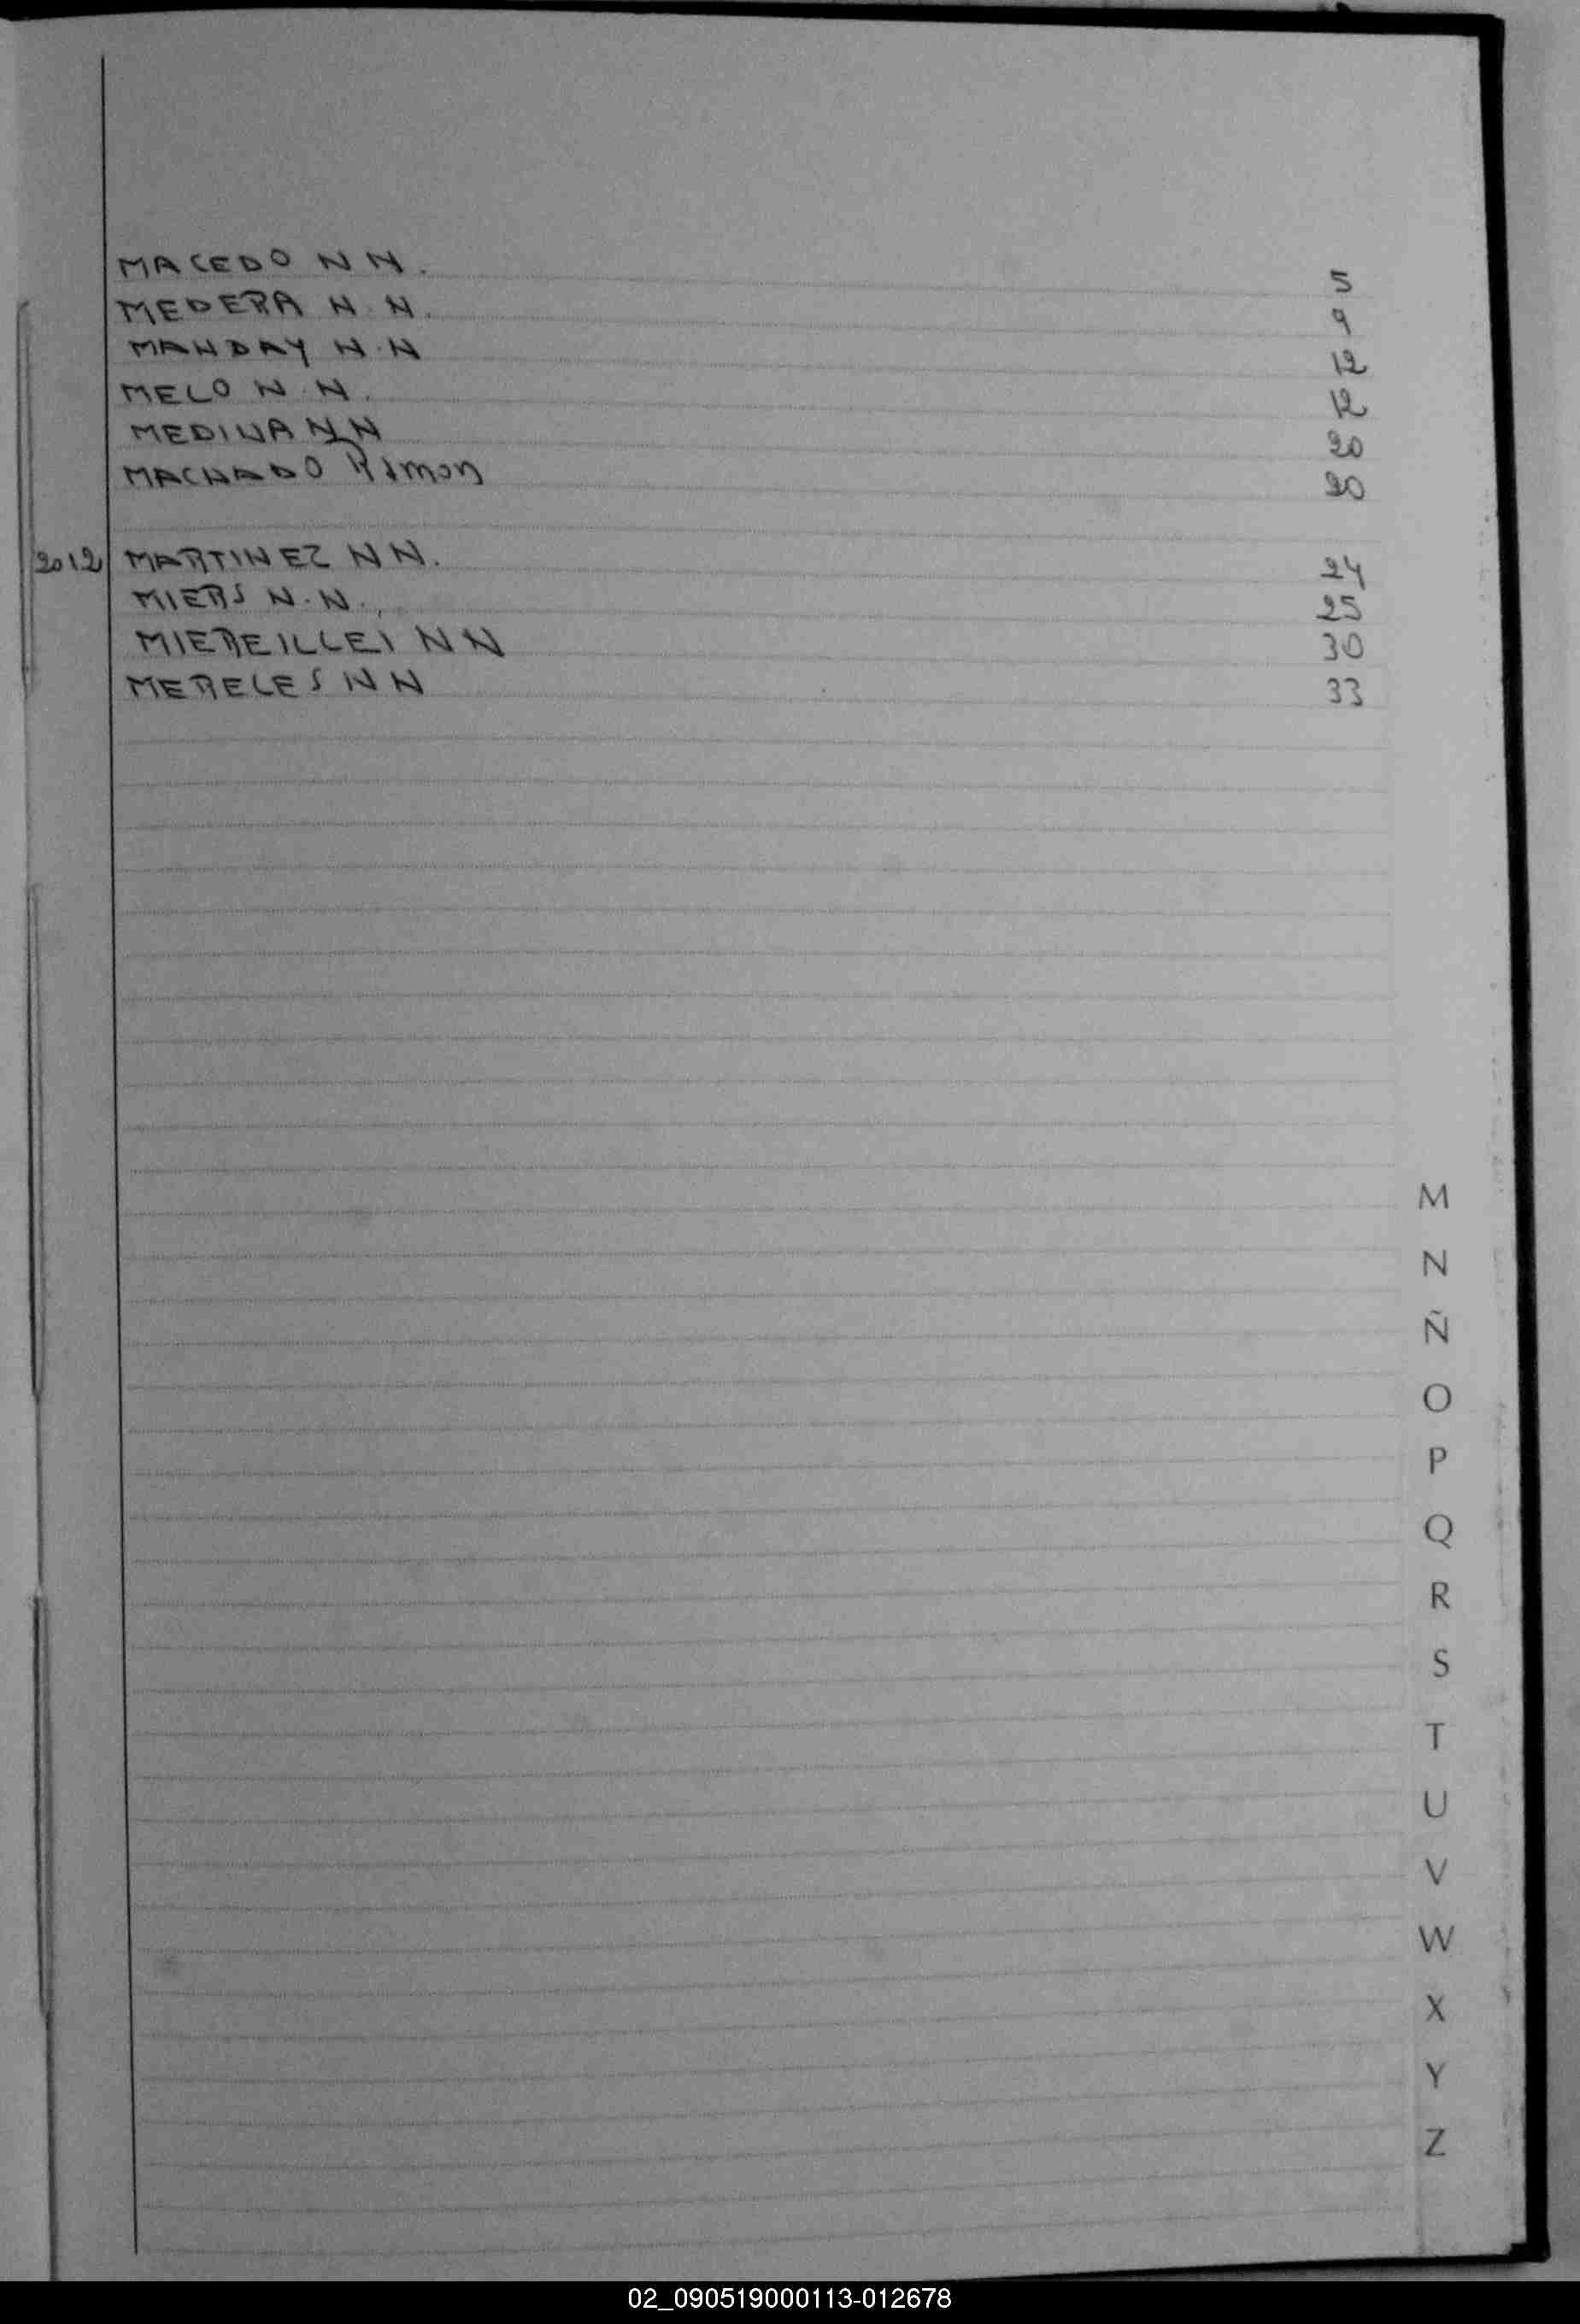 MACEDO N N. 5
MEDERA N. N. 9
MANDAY N. N 12
MELO N. N. 12
MEDINA N N 20
MACHADO Ramon 20
2012 MARTINEZ N N. 24
MIERS N. N. 25
MIEREILLEI N N 30
MERELES N N 33
M
N
Ñ
O
P
Q
R
S
T
U
V
W
X
Y
Z
02_090519000113-012678